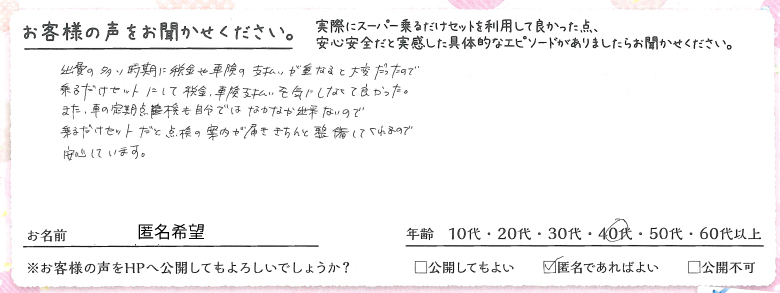 お客様の声をお聞かせください。
実際にスーパー乗るだけセットを利用して良かった点、
安心安全だと実感した具体的なエピソードがありましたらお聞かせください。
出費の多い時期に税金や車険の支払いが重なると大変だったので
乗るだけセットにして税金、車険支払いを気にしなくて良かった。
また、車の定期点検も自分ではなかなか出来ないので
乗るだけセットだと点検の案内が届ききちんと整備してくれるので
安心しています。
お名前 匿名希望
年齢 10代・20代・30代・40代・50代・60代以上
※お客様の声をHPへ公開してもよろしいでしょうか？ □公開してもよい ☑匿名であればよい □公開不可